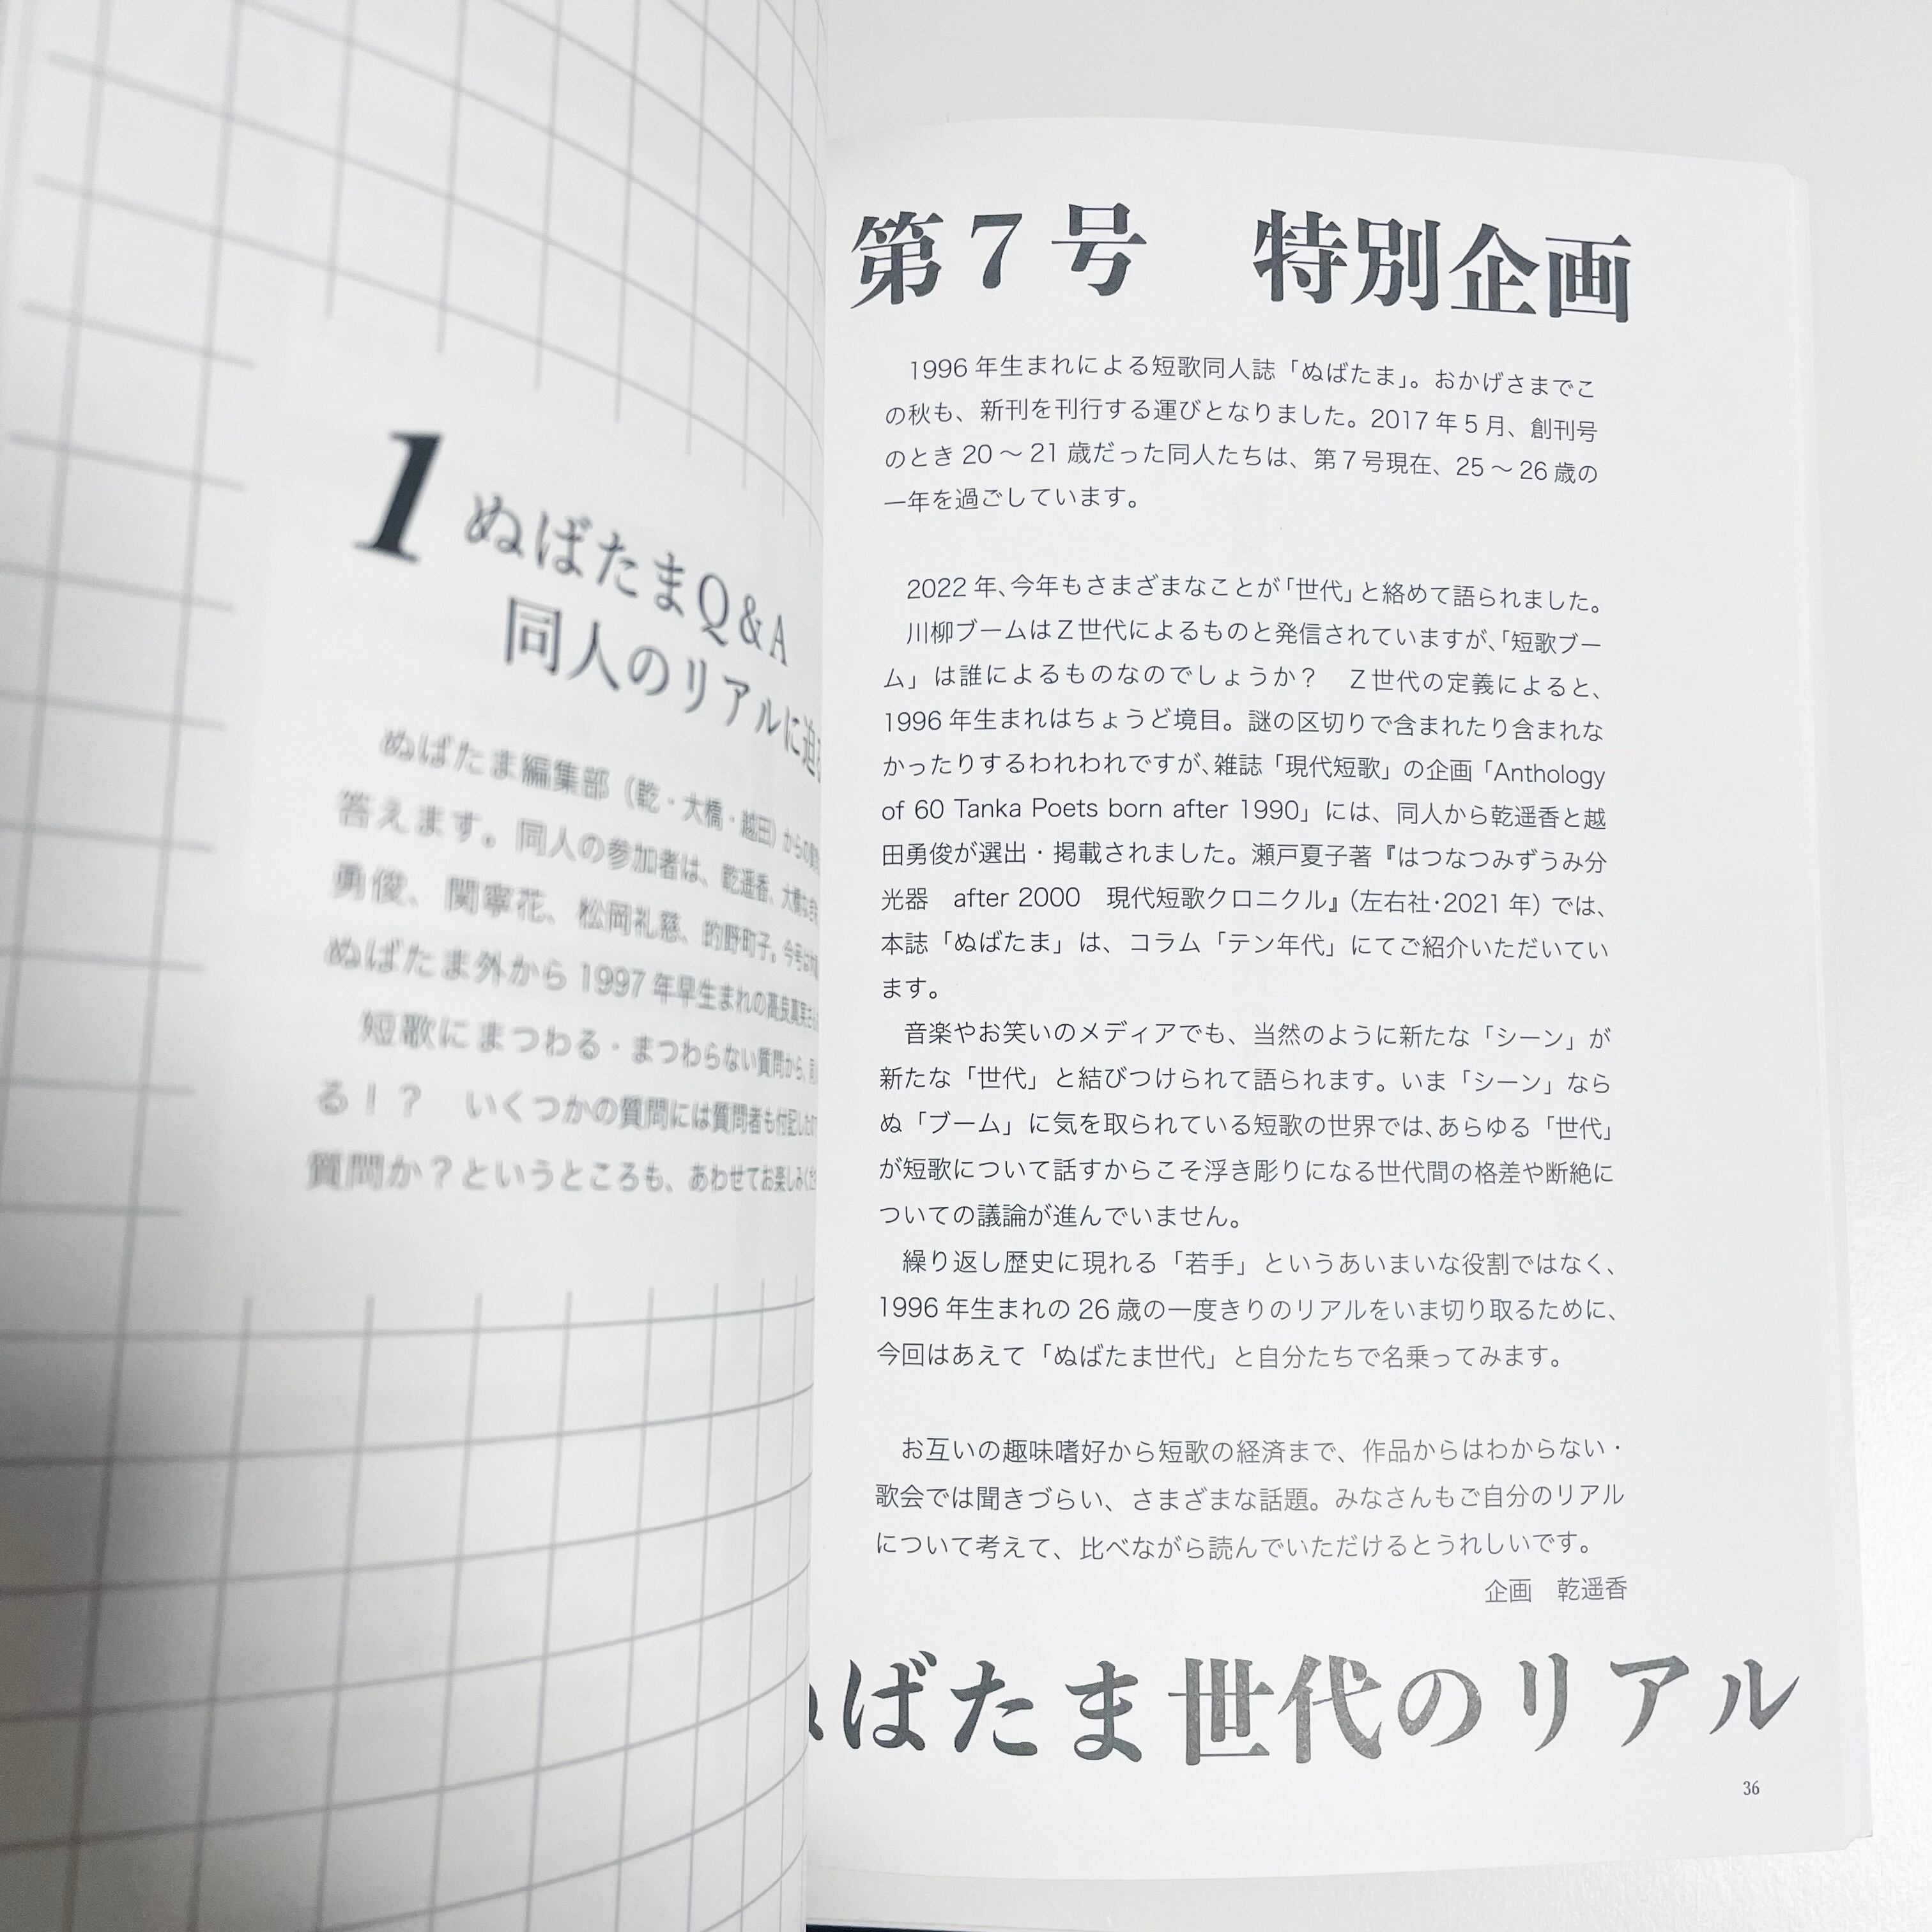 第7号　特別企画
1996年生まれによる短歌同人誌「ぬばたま」。おかげさまでこ
の秋も、新刊を刊行する運びとなりました。2017年5月、創刊号
のとき20〜21歳だった同人たちは、第7号現在、25〜26歳の
一年を過ごしています。
2022年、今年もさまざまなことが「世代」と絡めて語られました。
川柳ブームはZ世代によるものと発信されていますが、「短歌ブー
ム」は誰によるものなのでしょうか？　Z世代の定義によると、
1996年生まれはちょうど境目。謎の区切りで含まれたり含まれな
かったりするわれわれですが、雑誌「現代短歌」の企画「Anthology
of 60 Tanka Poets born after 1990」には、同人から乾遥香と越
田勇俊が選出・掲載されました。瀬戸夏子著『はつなつみずうみ分
光器　after 2000　現代短歌クロニクル』（左右社・2021年）では、
本誌「ぬばたま」は、コラム「テン年代」にてご紹介いただいてい
ます。
音楽やお笑いのメディアでも、当然のように新たな「シーン」が
新たな「世代」と結びつけられて語られます。いま「シーン」なら
ぬ「ブーム」に気を取られている短歌の世界では、あらゆる「世代」
が短歌について話すからこそ浮き彫りになる世代間の格差や断絶に
ついての議論が進んでいません。
繰り返し歴史に現れる「若手」というあいまいな役割ではなく、
1996年生まれの26歳の一度きりのリアルをいま切り取るために、
今回はあえて「ぬばたま世代」と自分たちで名乗ってみます。
お互いの趣味嗜好から短歌の経済まで、作品からはわからない・
歌会では聞きづらい、さまざまな話題。みなさんもご自分のリアル
について考えて、比べながら読んでいただけるとうれしいです。
企画　乾遥香
ばたま世代のリアル
36
1 ぬばたまQ&A
同人のリアルに迫
ぬばたま編集部（乾・大橋・越田）からの
答えます。同人の参加者は、乾遥香、大橋
勇俊、関寧花、松岡礼慈、的野町子。今号は
ぬばたま外から1997年早生まれの髙良真実
短歌にまつわる・まつわらない質問から、
る！？　いくつかの質問には質問者も付記した
質問か？というところも、あわせてお楽しみく